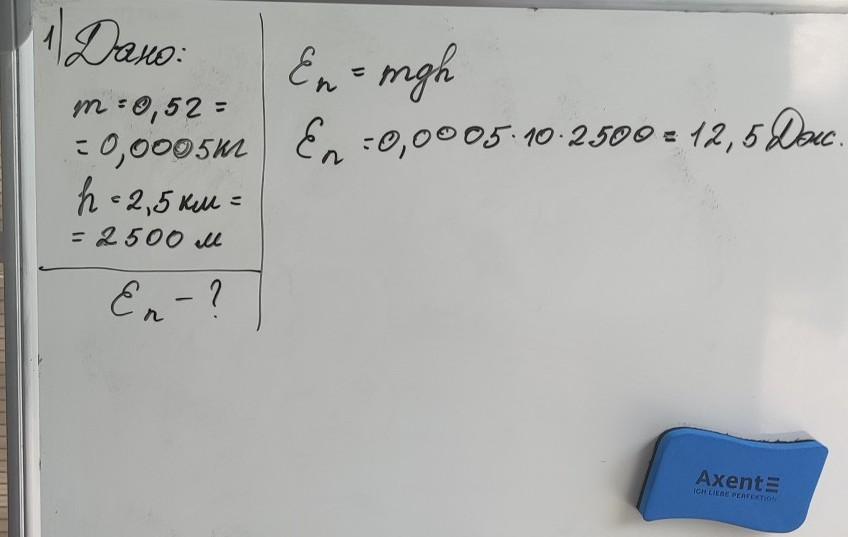 1) Дано:
m = 0,5г =
= 0,0005кг
h = 2,5 км =
= 2500 м
Eп - ?
Eп = mgh
Eп = 0,0005·10·2500 = 12,5 Дж.
Axent
ICH LIEBE PERFEKTION